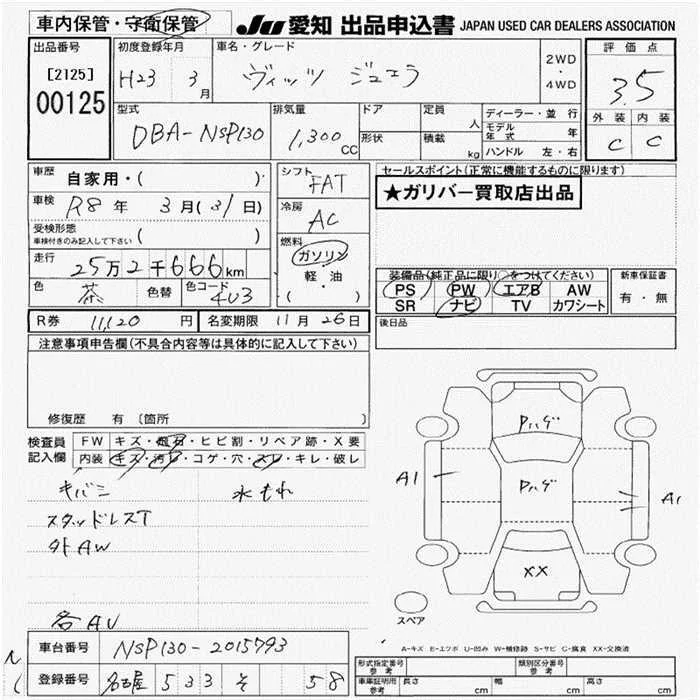 車内保管・守衛保管
JU 愛知 出品申込書 JAPAN USED CAR DEALERS ASSOCIATION
出品番号
[2125]
00125
初度登録年月
H23 3月
車名・グレード
ヴィッツ ジュエラ
2WD
・
4WD
評価点
3.5
外装 内装
C C
型式
DBA-NSP130
排気量
1,300cc
ドア
形状
定員
人
積載
kg
ディーラー・並行
モデル年式 年
ハンドル 左・右
車歴
自家用・( )
車検
R8年 3月(31日)
受検形態
車検付きのみ記入して下さい ( )
走行
25万2千666km
色
茶
色替
色コード
4U3
シフト
FAT
冷房
AC
燃料
ガソリン
・
軽・油
( )
セールスポイント(正常に機能するものに限ります)
★ガリバー買取店出品
装備品(純正品に限り○をつけてください)
PS PW エアB AW
SR ナビ TV カワシート
新車保証書
有・無
R券 11,120円
名変期限 11月26日
後日品
注意事項申告欄(不具合内容等は具体的に記入して下さい)
修復歴 有〔箇所 〕
検査員記入欄
FW キズ・飛石・ヒビ割・リペア跡・X要
内装 キズ・汚レ・コゲ・穴・スレ・キレ・破レ
キバミ 水もれ
スタッドレスT
外AW
各AU
Pハゲ
PハゲA1
A1
XX
スペア
A-キズ E-エクボ U-凹み W-補修跡 S-サビ C-腐食 XX-交換済
車台番号 NSP130-2015793
登録番号 名古屋 533 そ 58
形式指定番号 参考
類別区分番号 参考
車庫証明用 参考
長さ cm 幅 cm 高さ cm